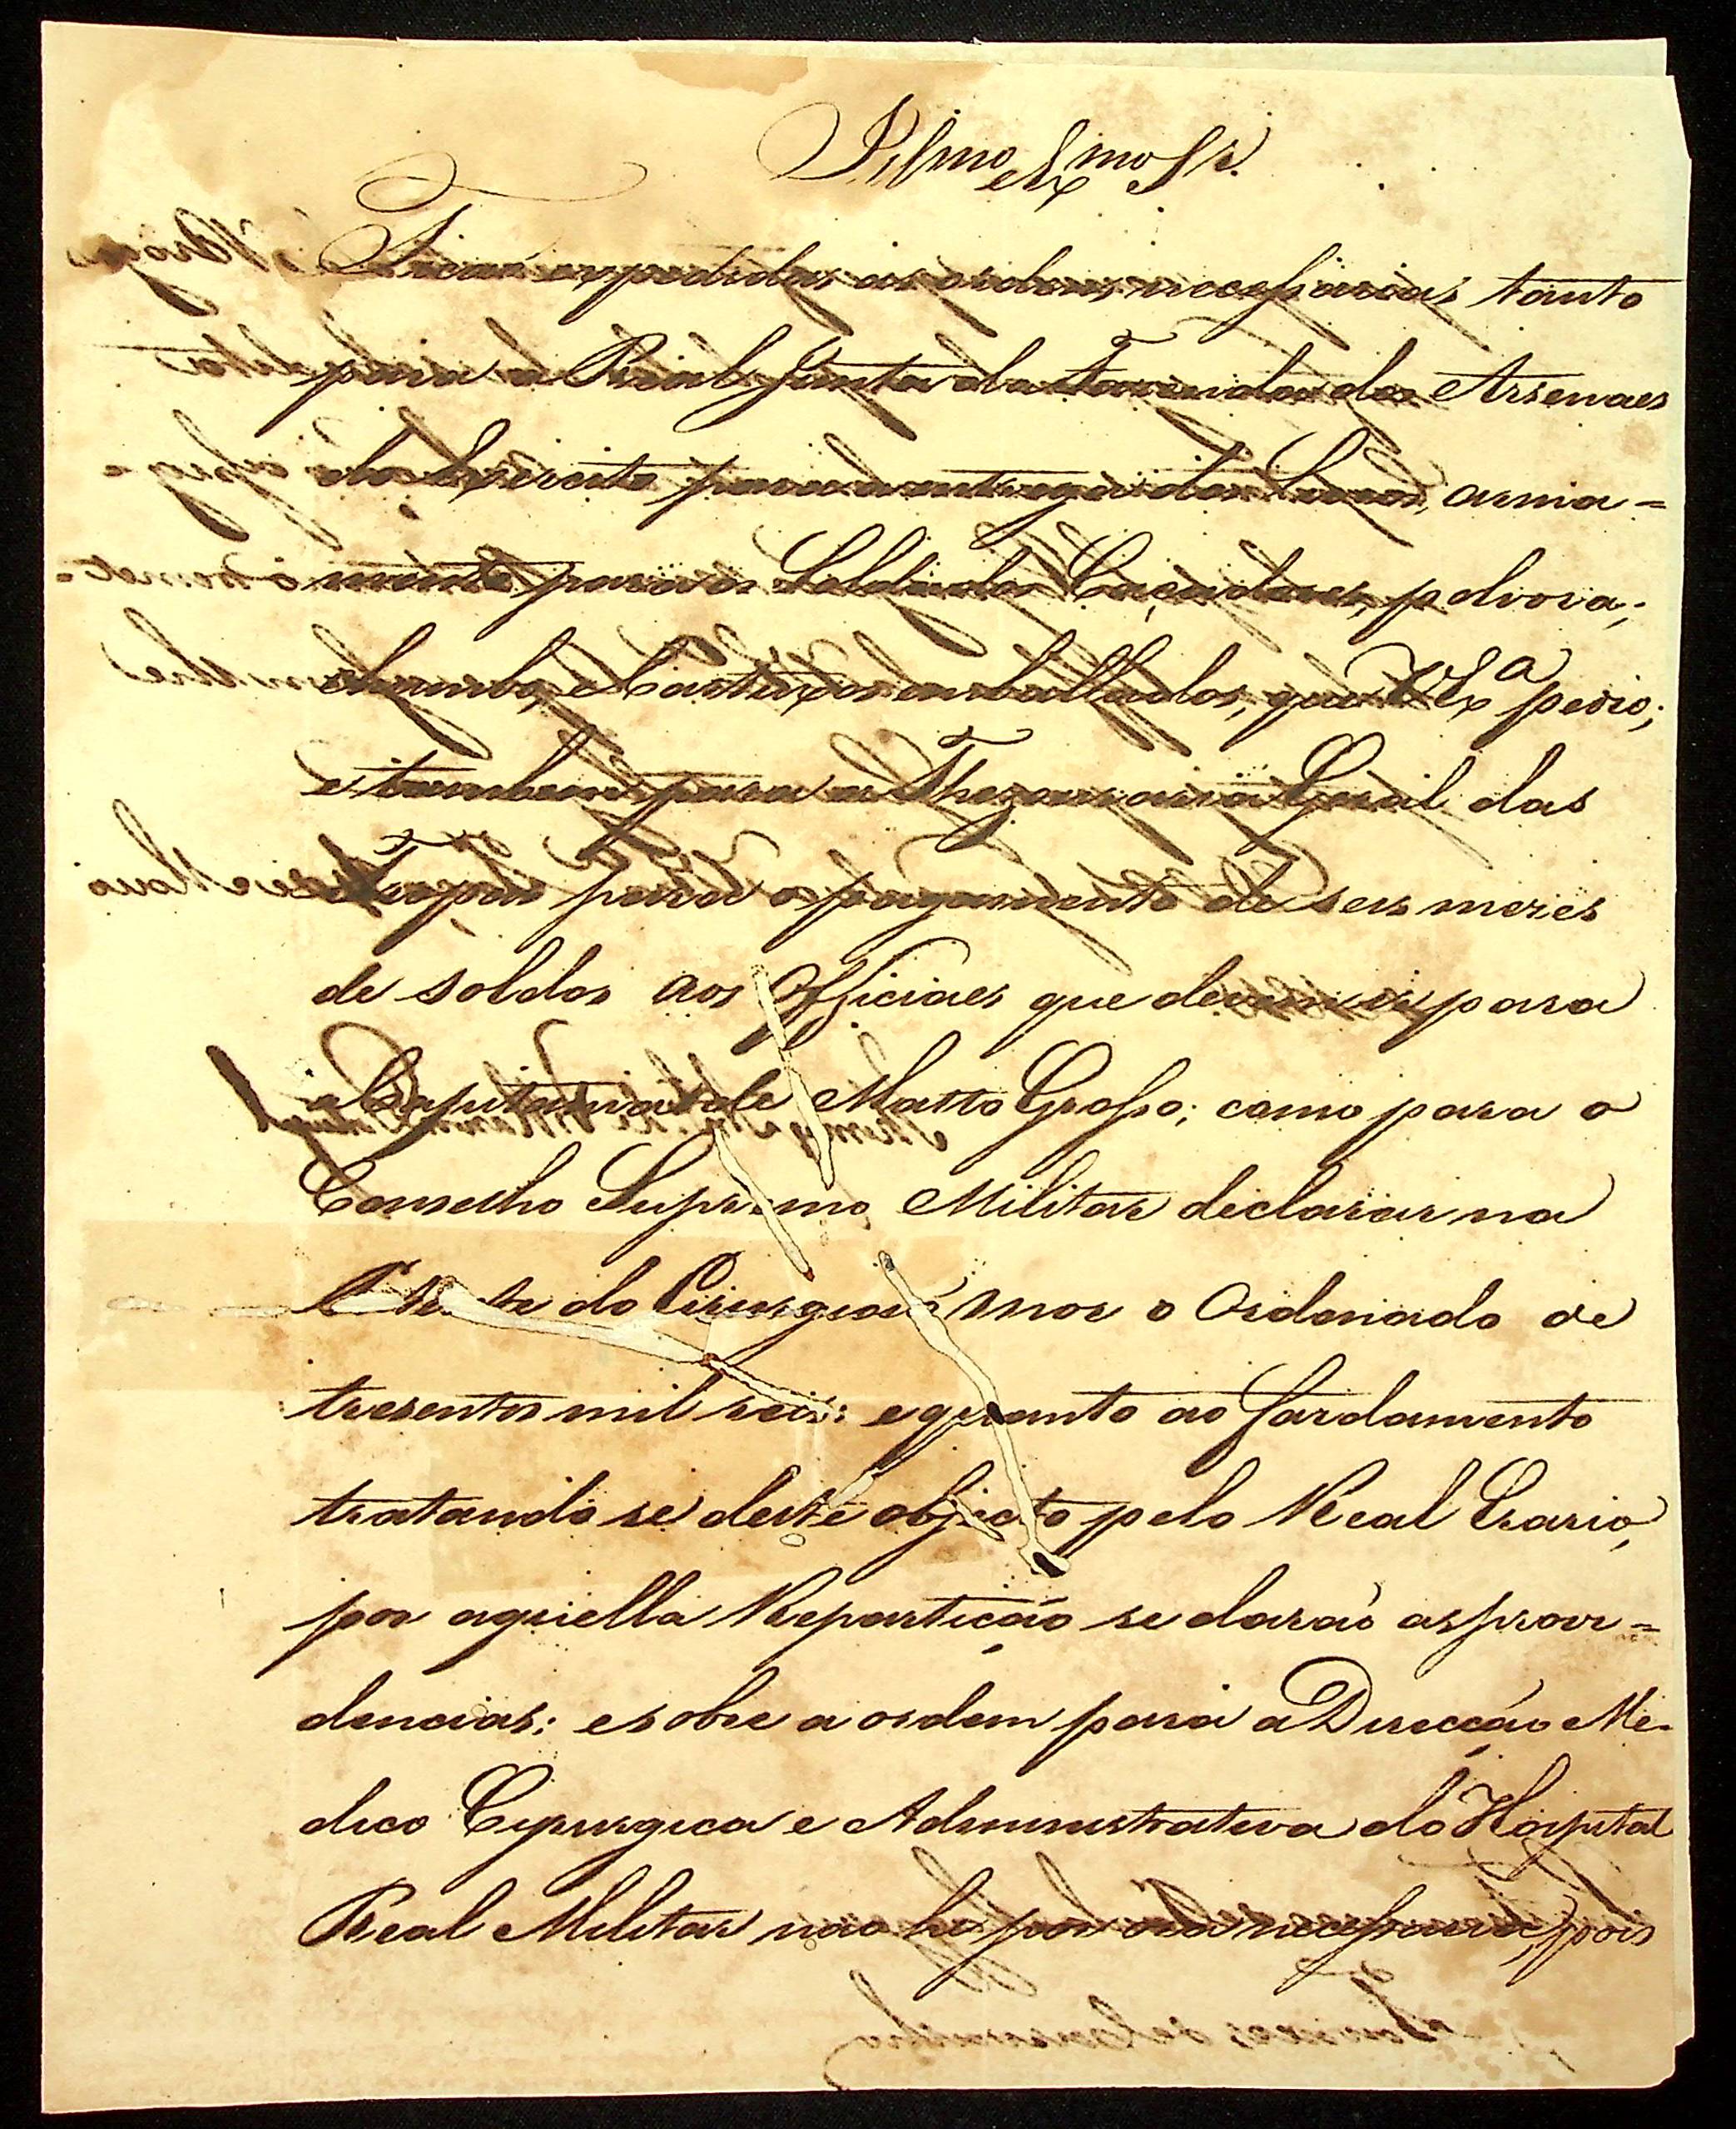 Illmo e Exmo Sr.
Ficaõ expedidas as ordens necessarias, tanto
para a Real Junta da Fazenda dos Arsenaes
do Exercito para a entrega dos arma=
mento para os Soldados Caçadores, polvora,
chumbo, e Cartuxos embalados, que V Exa pedio;
e tambem para a Thezouraria Geral das
Tropas para o pagamento de seis mezes
de soldos aos Officiaes que devem ir para
a Capitania de Matto Grosso; como para o
Conselho Supremo Militar declarar na
do Cirurgiaõ mor o Ordenado de
tresentos mil reis: e quanto ao fardamento
tratando se deste objecto pelo Real Erario,
por aquella Repartiçaõ se daraõ as provi=
dencias: e sobre a ordem para a Direcçaõ Me-
dico Cirurgica e Administrativa do Hospital
Real Militar naõ he por ora necessaria, pois